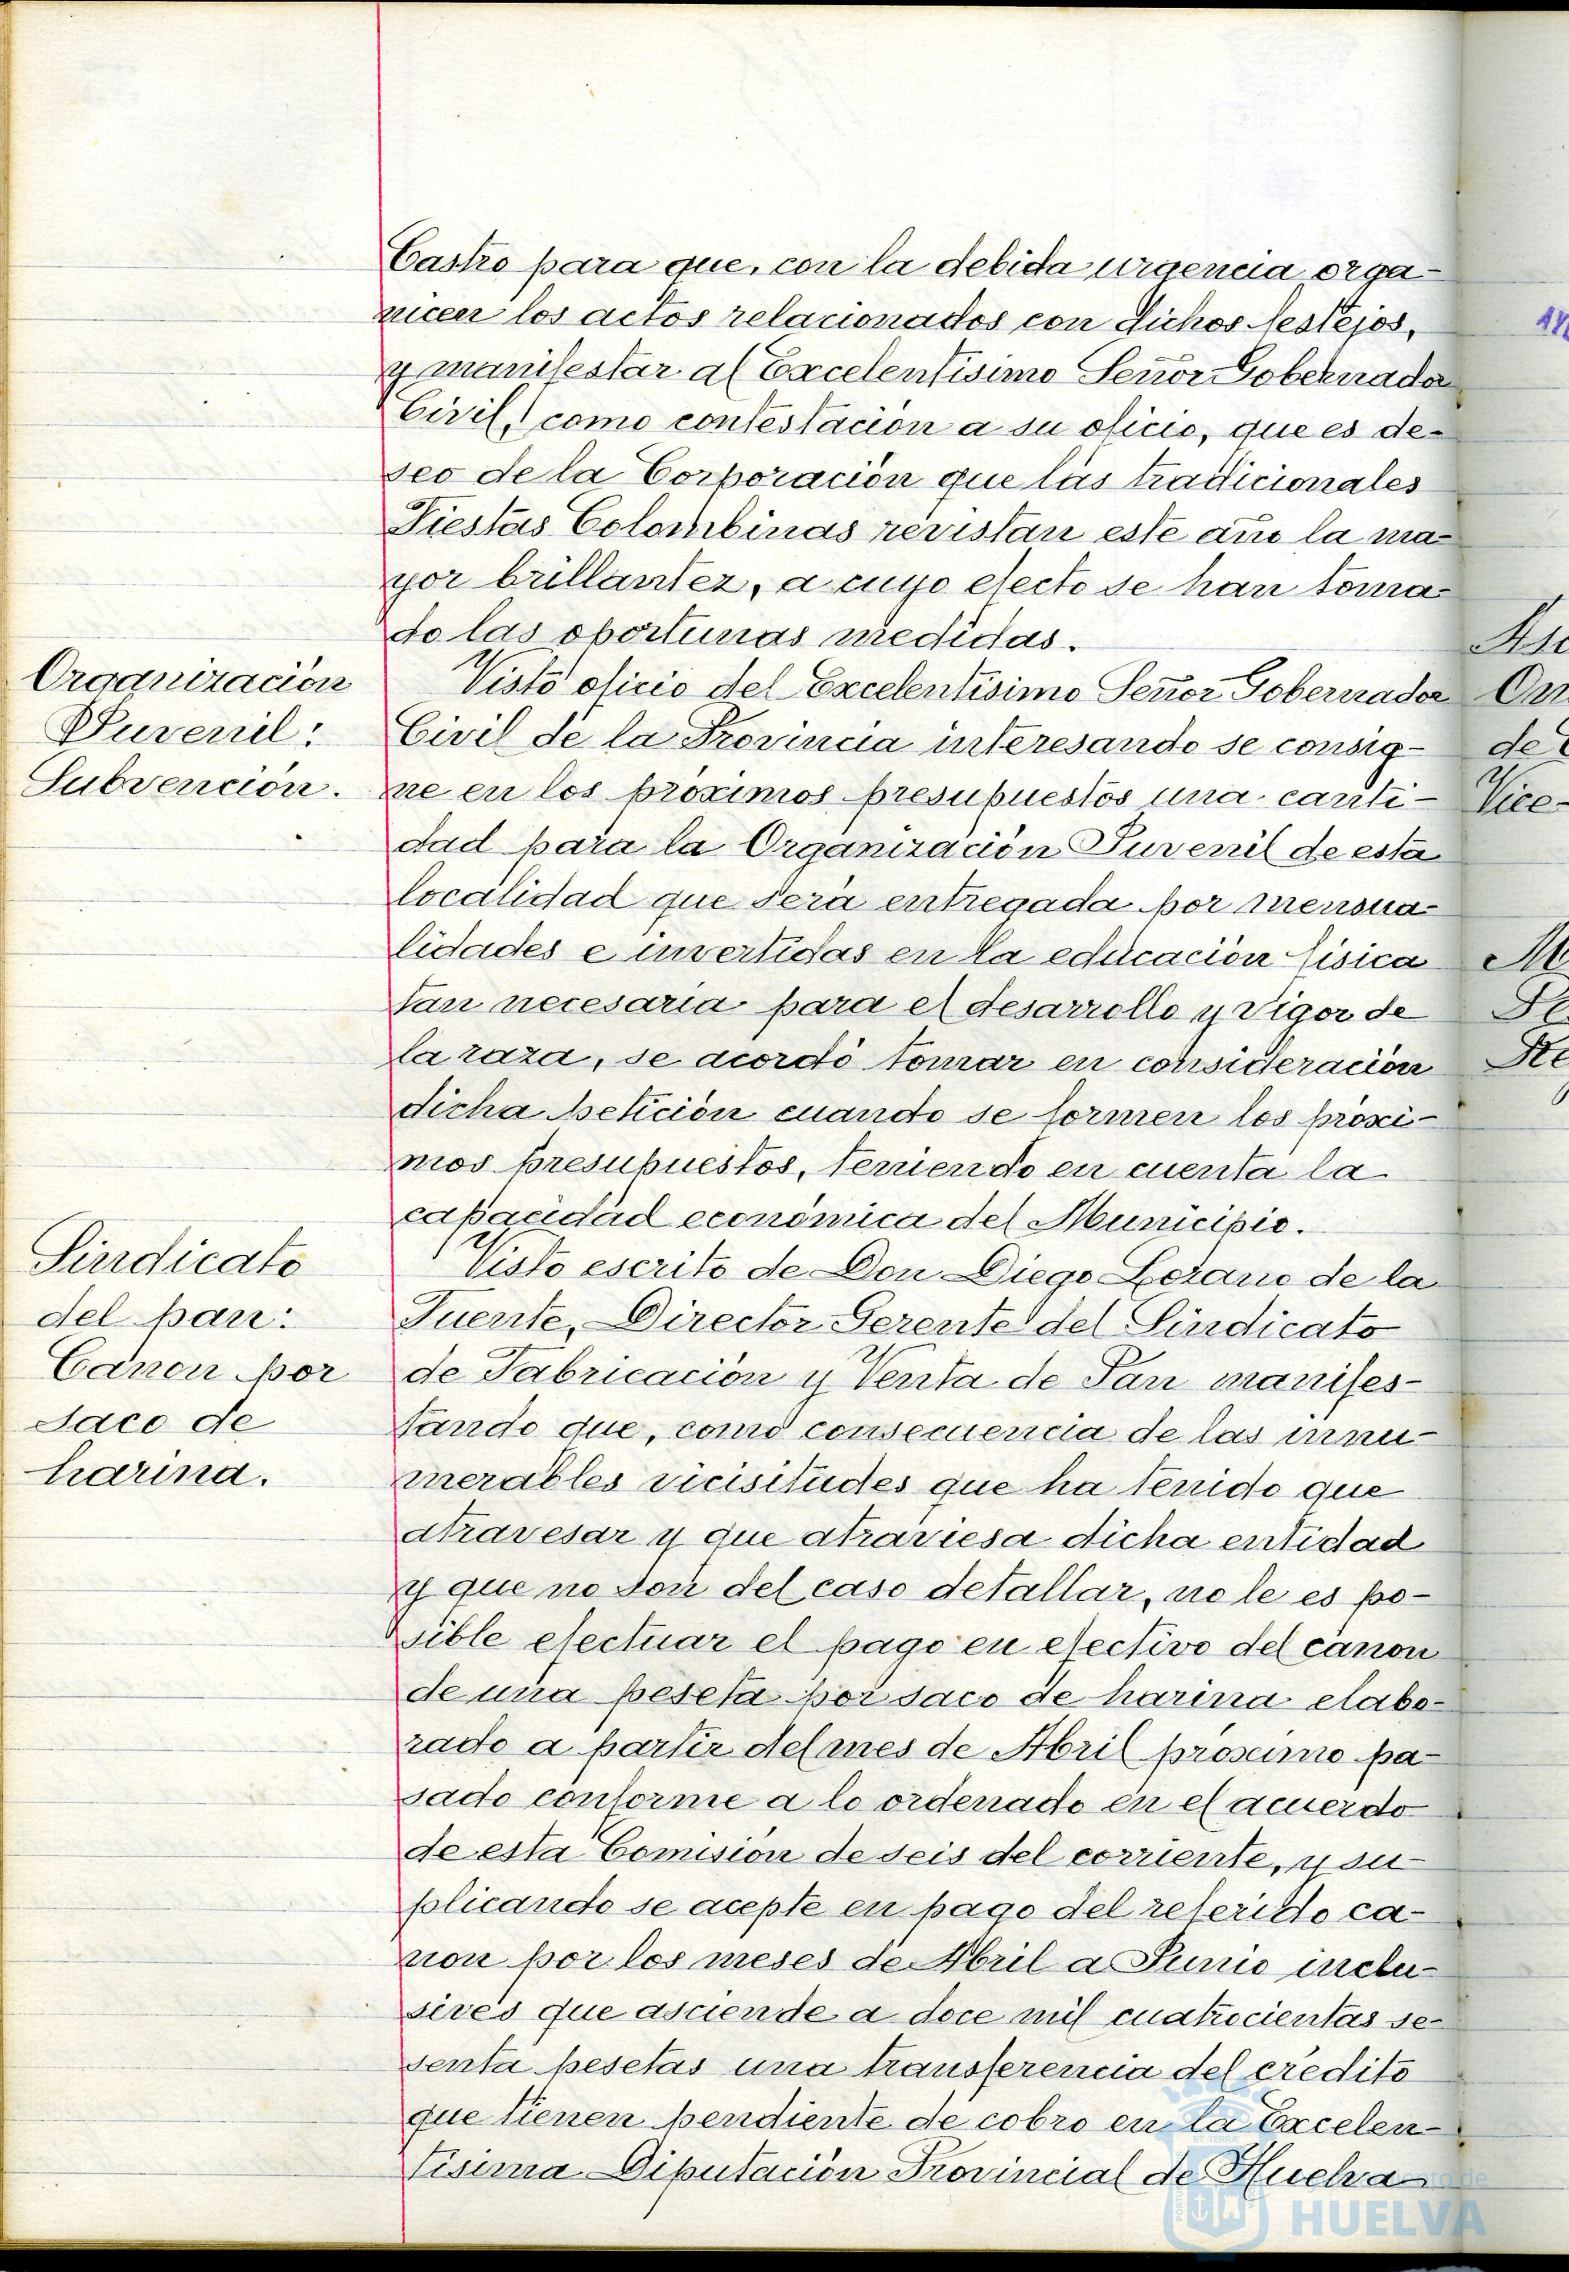 Castro para que, con la debida urgencia orga-
nicen los actos relacionados con dichos festejos,
y manifestar al Excelentísimo Señor Gobernador
Civil, como contestación a su oficio, que es de-
seo de la Corporación que las tradicionales
Fiestas Colombinas revistan este año la ma-
yor brillantez, a cuyo efecto se han toma-
do las oportunas medidas.
Organización
Juvenil:
Subvención.
Visto oficio del Excelentísimo Señor Gobernador
Civil de la Provincia interesando se consig-
ne en los próximos presupuestos una canti-
dad para la Organización Juvenil de esta
localidad que será entregada por mensua-
lidades e invertidas en la educación física
tan necesaria para el desarrollo y vigor de
la raza, se acordó tomar en consideración
dicha petición cuando se formen los próxi-
mos presupuestos, teniendo en cuenta la
capacidad económica del Municipio.
Sindicato
del pan:
Canon por
saco de
harina.
Visto escrito de Don Diego Lozano de la
Fuente, Director Gerente del Sindicato
de Fabricación y Venta de Pan manifes-
tando que, como consecuencia de las innu-
merables vicisitudes que ha tenido que
atravesar y que atraviesa dicha entidad
y que no son del caso detallar, no le es po-
sible efectuar el pago en efectivo del canon
de una peseta por saco de harina elabo-
rado a partir del mes de Abril próximo pa-
sado conforme a lo ordenado en el acuerdo
de esta Comisión de seis del corriente, y su-
plicando se acepte en pago del referido ca-
non por los meses de Abril a Junio inclu-
sives que asciende a doce mil cuatrocientas se-
senta pesetas una transferencia del crédito
que tienen pendiente de cobro en la Excelen-
tísima Diputación Provincial de Huelva
de
Vice-
HUELVA